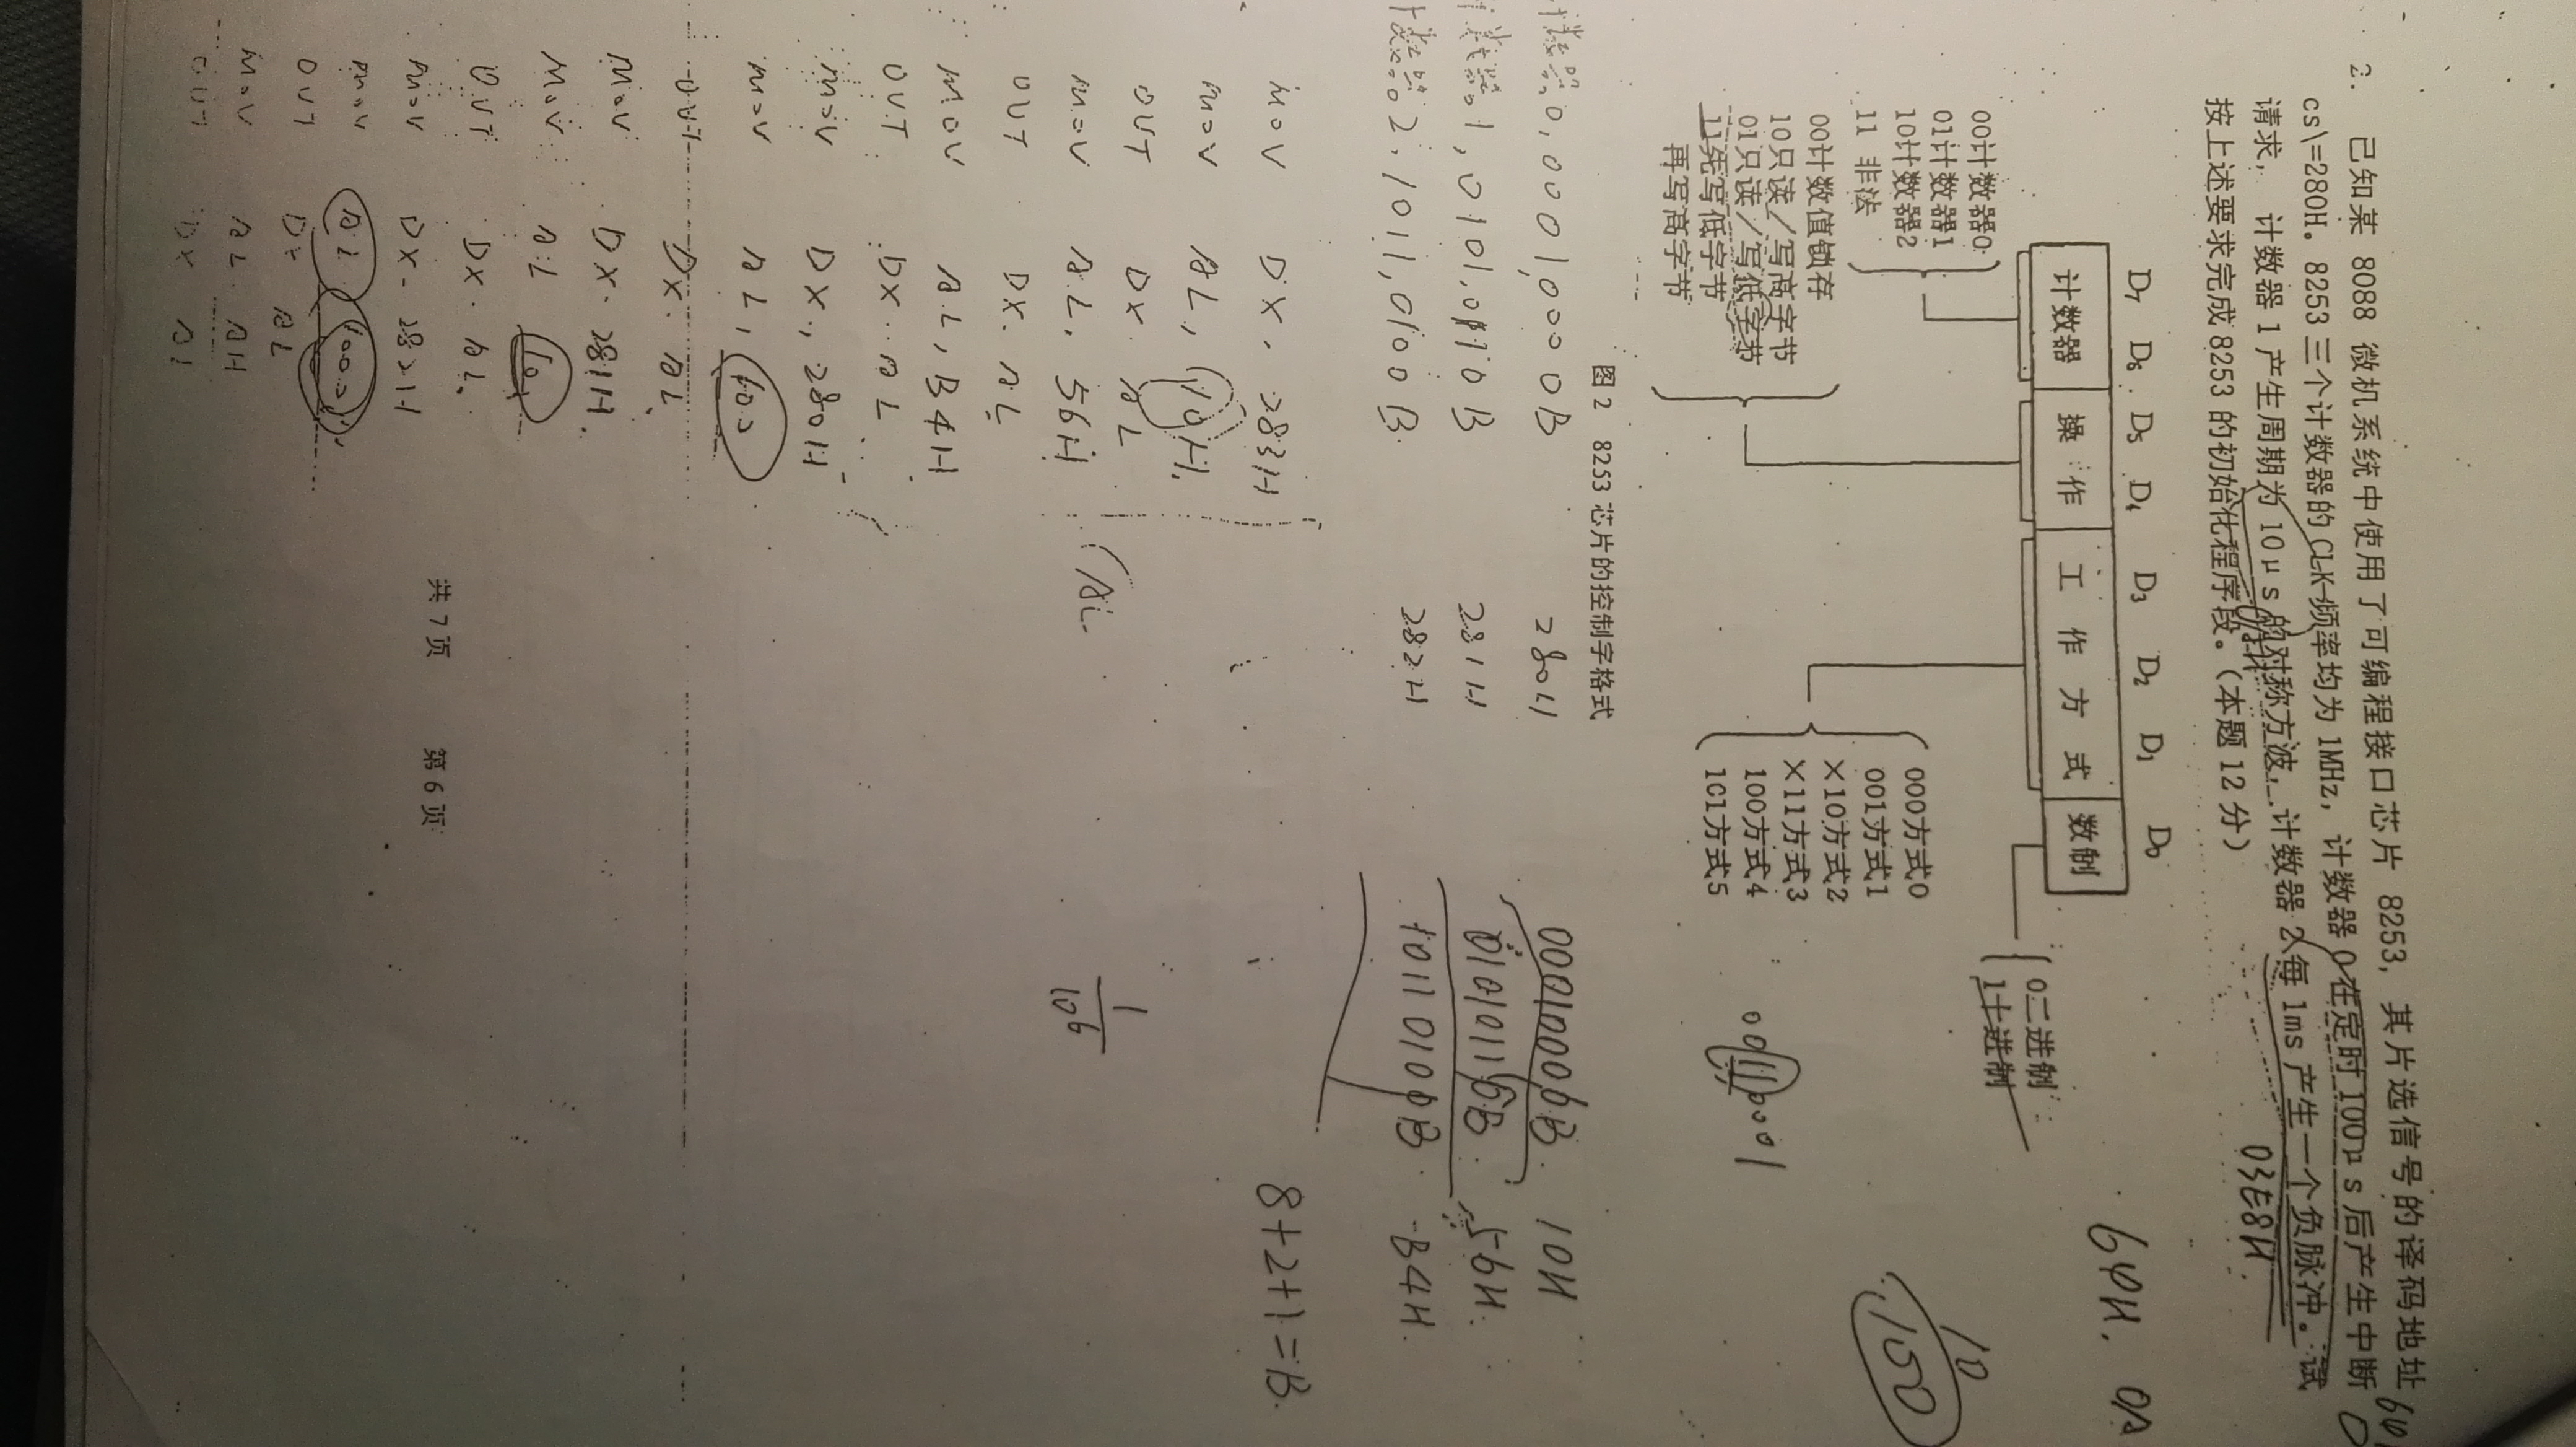 2. 已知某 8088 微机系统中使用了可编程接口芯片 8253, 其片选信号的译码地址
cs\=280H。8253 三个计数器的 CLK 频率均为 1MHz, 计数器 0 在定时 100μs 后产生中断
请求, 计数器 1 产生周期为 10μs 的对称方波, 计数器 2 每 1ms 产生一个负脉冲。试
按上述要求完成 8253 的初始化程序段。(本题 12 分)
03E8H
64H.
D₇ D₆ D₅ D₄ D₃ D₂ D₁ D₀
计数器 操作 工作方式 数制
00计数器0
01计数器1
10计数器2
11 非法
0二进制
1十进制
00计数值锁存
10只读/写高字节
01只读/写低字节
11先写低字节
再写高字节
000方式0
001方式1
×10方式2
×11方式3
100方式4
101方式5
100
10
图 2 8253 芯片的控制字格式
计数器0, 0001,0000B 280H 00010000B. 10H
计数器1, 0101,0110B 281H 01010110B. 56H.
计数器2. 1011,0100B. 282H 10110100B. B4H.
8+2+1=B.
MOV DX, 283H
MOV AL, 10H
OUT DX. AL
MOV AL, 56H
(AL
1
10⁶
OUT DX. AL
MOV AL, B4H
OUT DX. AL
MOV DX, 280H
MOV AL, 100
OUT DX. AL
MOV DX. 281H
MOV AL 10
OUT DX. AL
MOV DX. 282H
MOV AL. 1000
OUT DX AL
MOV AL. AH
OUT DX AL
共 7 页 第 6 页